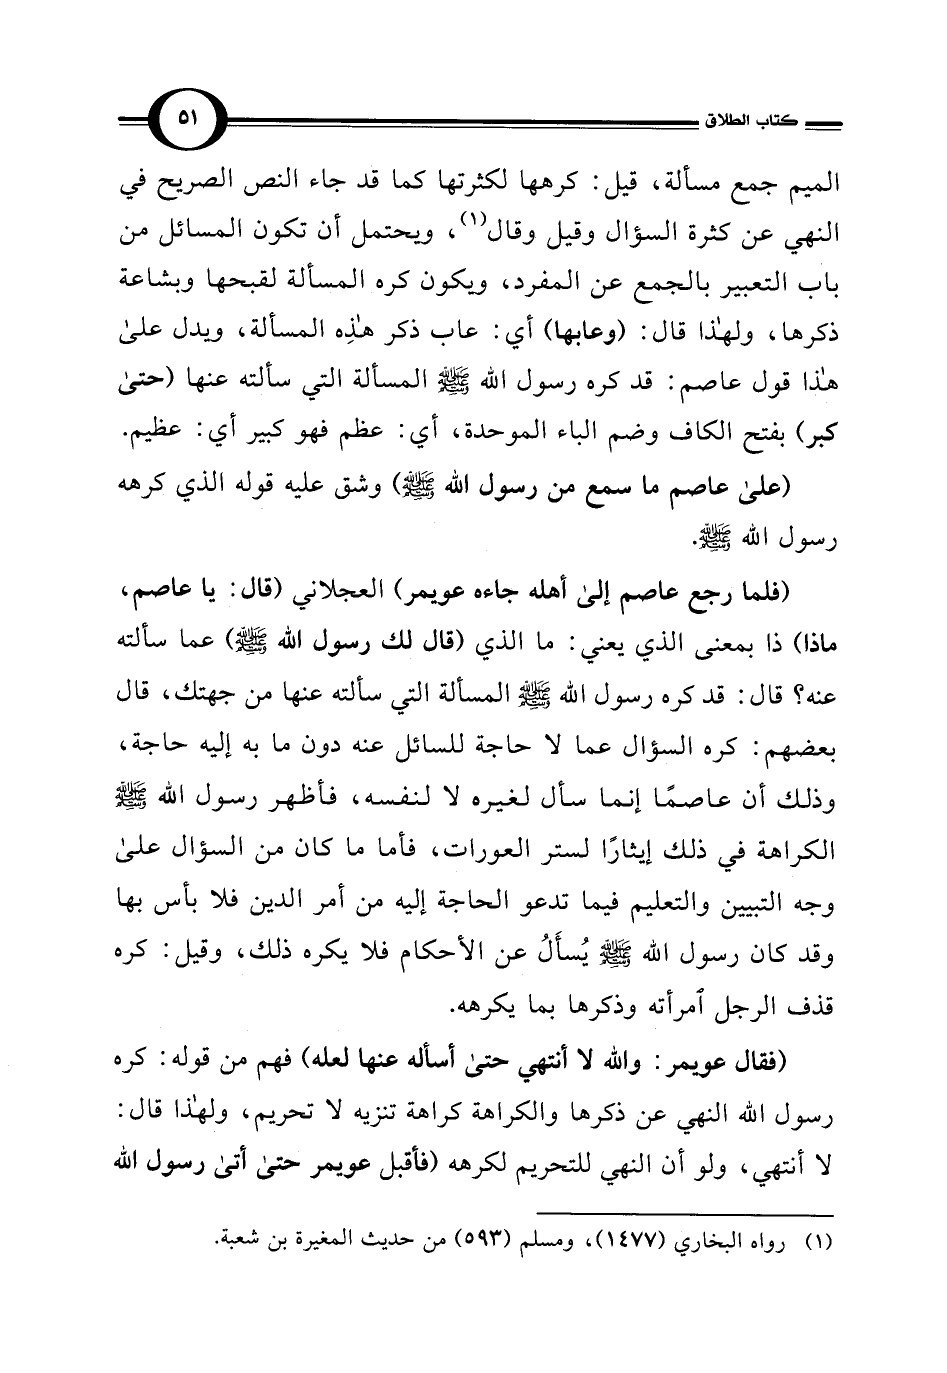 كتاب الطلاق ٥١
الميم جمع مسألة، قيل: كرهها لكثرتها كما قد جاء النص الصريح في
النهي عن كثرة السؤال وقيل وقال(١)، ويحتمل أن تكون المسائل من
باب التعبير بالجمع عن المفرد، ويكون كره المسألة لقبحها وبشاعة
ذكرها، ولهٰذا قال: (وعابها) أي: عاب ذكر هٰذِه المسألة، ويدل علىٰ
هٰذا قول عاصم: قد كره رسول الله ﷺ المسألة التي سألته عنها (حتىٰ
كبر) بفتح الكاف وضم الباء الموحدة، أي: عظم فهو كبير أي: عظيم.
(علىٰ عاصم ما سمع من رسول الله ﷺ) وشق عليه قوله الذي كرهه
رسول الله ﷺ.
(فلما رجع عاصم إلىٰ أهله جاءه عويمر) العجلاني (قال: يا عاصم،
ماذا) ذا بمعنى الذي يعني: ما الذي (قال لك رسول الله ﷺ) عما سألته
عنه؟ قال: قد كره رسول الله ﷺ المسألة التي سألته عنها من جهتك، قال
بعضهم: كره السؤال عما لا حاجة للسائل عنه دون ما به إليه حاجة،
وذلك أن عاصمًا إنما سأل لغيره لا لنفسه، فأظهر رسول الله ﷺ
الكراهة في ذلك إيثارًا لستر العورات، فأما ما كان من السؤال علىٰ
وجه التبيين والتعليم فيما تدعو الحاجة إليه من أمر الدين فلا بأس بها
وقد كان رسول الله ﷺ يُسأَلُ عن الأحكام فلا يكره ذلك، وقيل: كره
قذف الرجل ٱمرأته وذكرها بما يكرهه.
(فقال عويمر: والله لا أنتهي حتىٰ أسأله عنها لعله) فهم من قوله: كره
رسول الله النهي عن ذكرها والكراهة كراهة تنزيه لا تحريم، ولهٰذا قال:
لا أنتهي، ولو أن النهي للتحريم لكرهه (فأقبل عويمر حتىٰ أتىٰ رسول الله
(١) رواه البخاري (١٤٧٧)، ومسلم (٥٩٣) من حديث المغيرة بن شعبة.